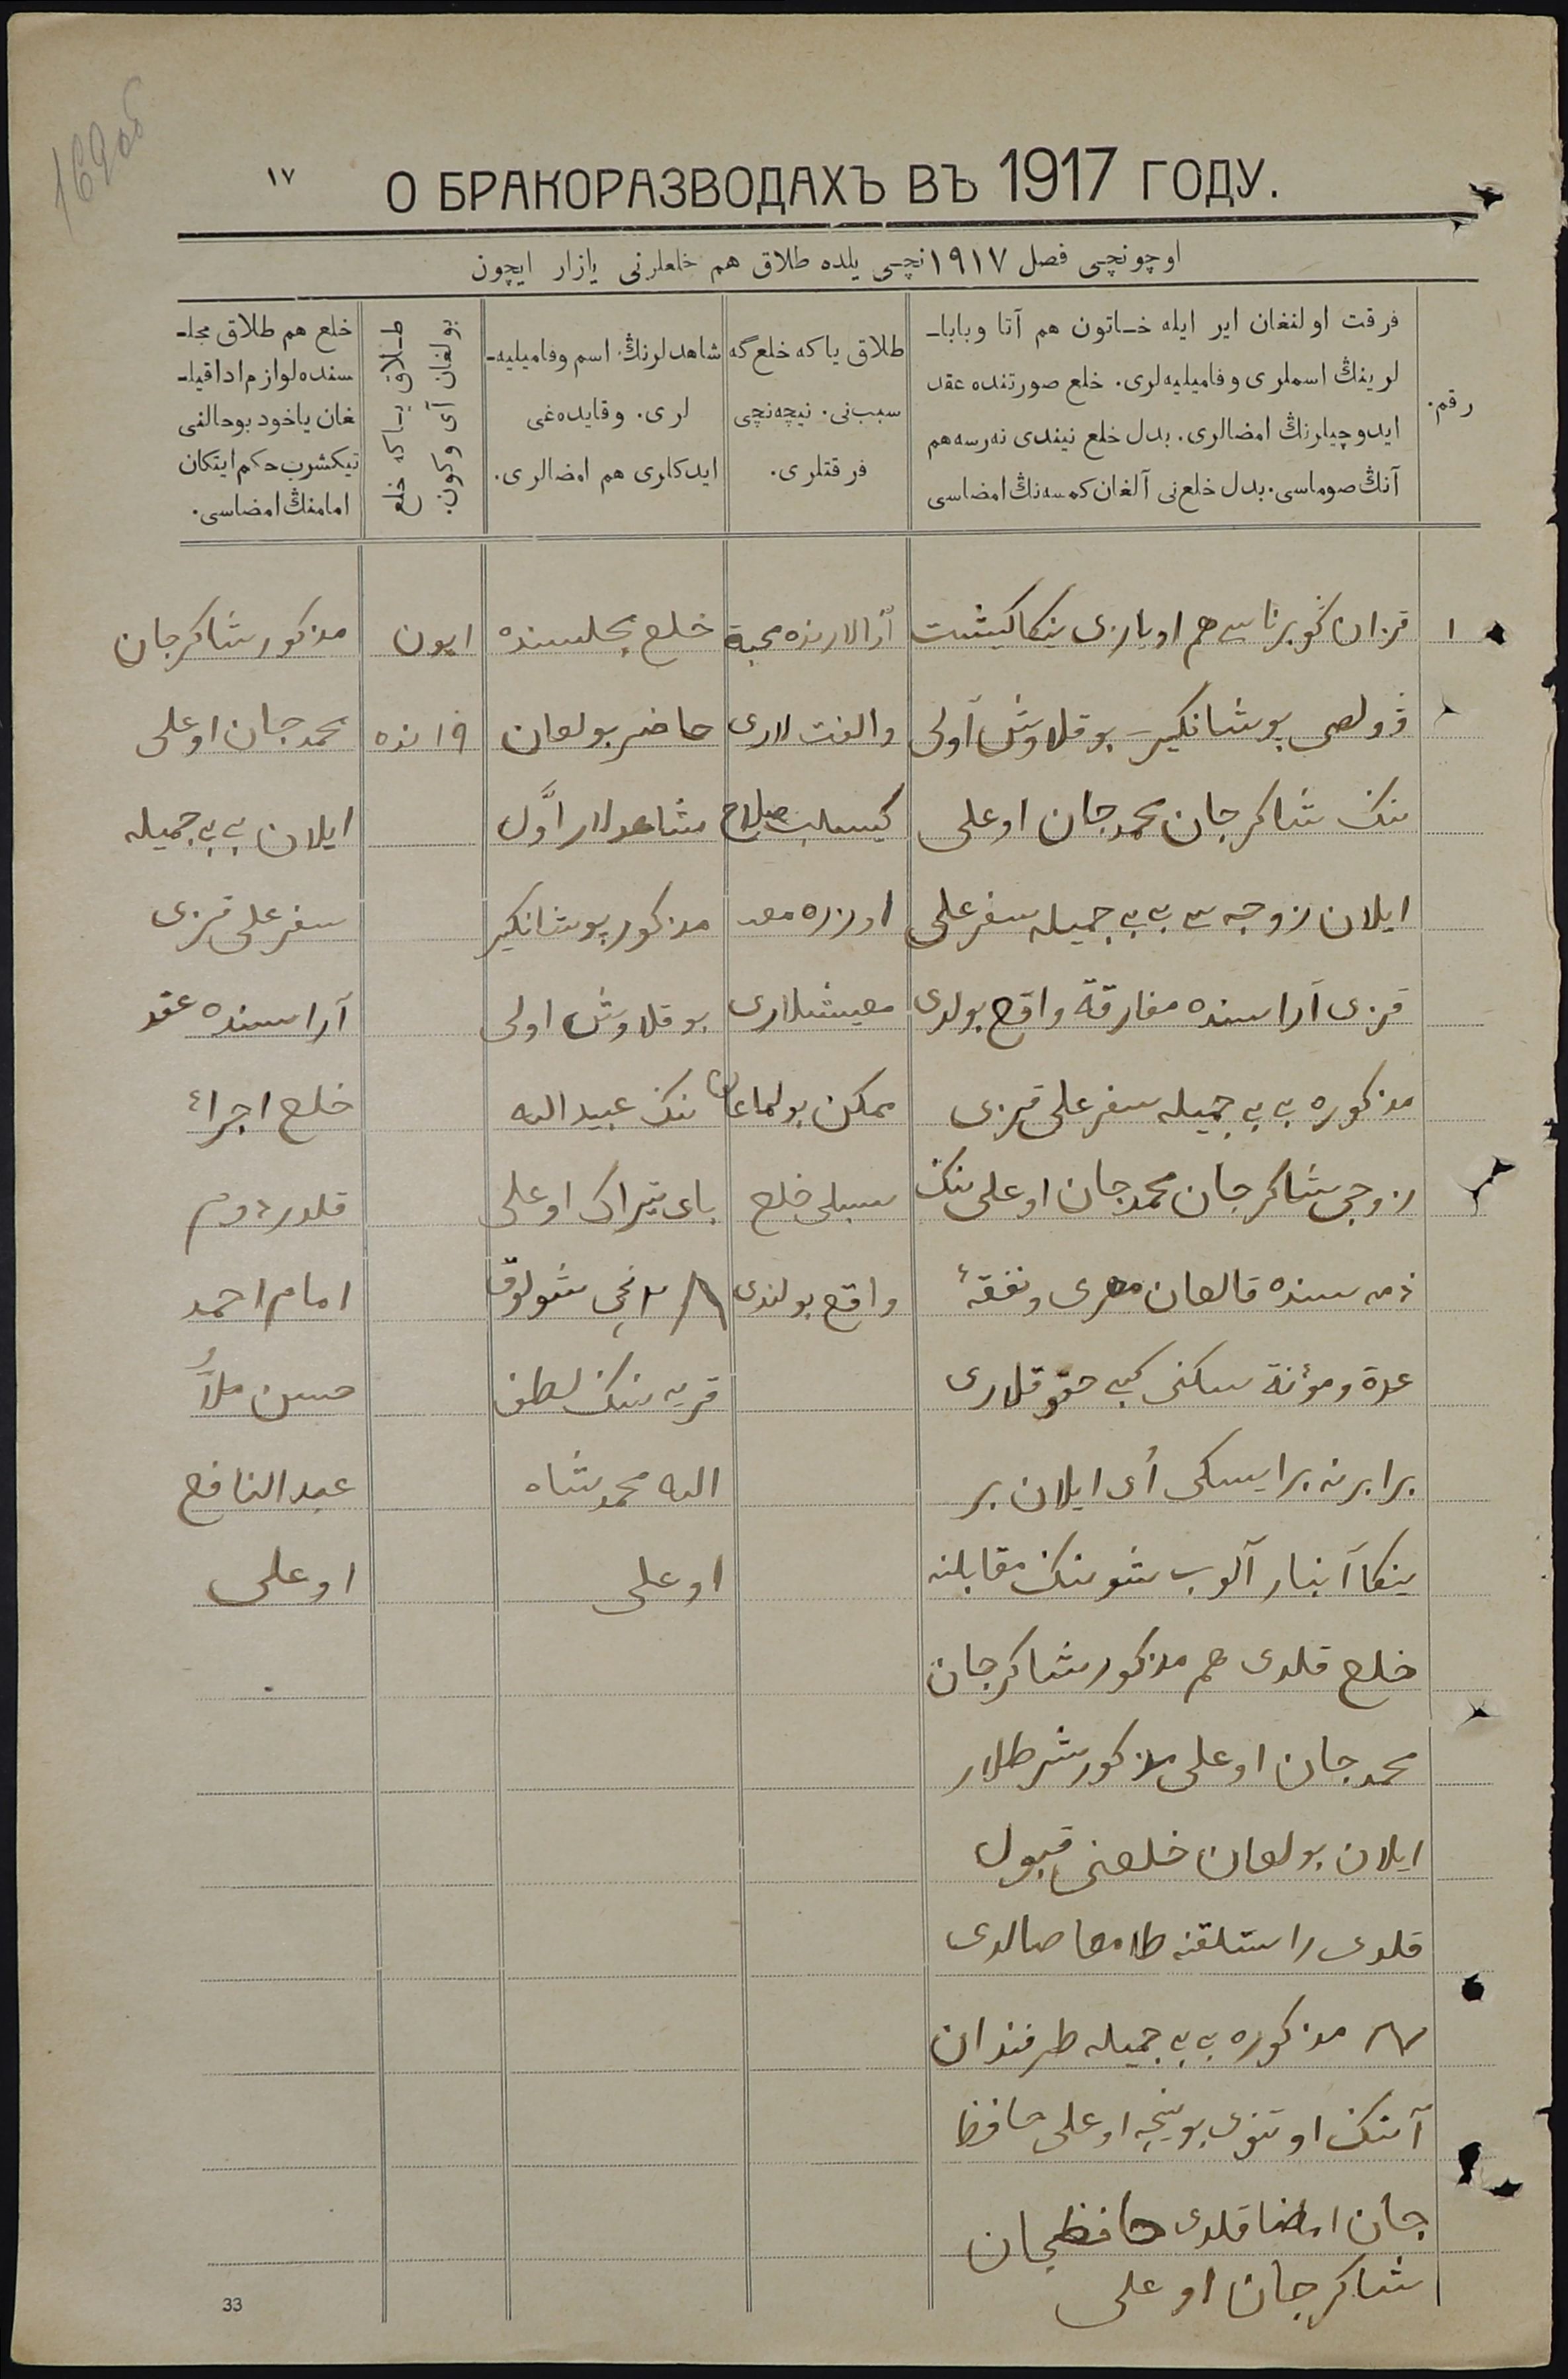 169 об
١٧
О БРАКОРАЗВОДАХЪ ВЪ 1917 ГОДУ.
اوچونچی فصل ١٩١٧نچی یلده طلاق هم خلعلرنی یازار ایچون
رقم.
فرقت اولنغان ایر ایله خاتون هم آتا وبابا-
لرینڭ اسملری وفامیلیه‌لری. خلع صورتنده عقد
ایدوچیلرنڭ امضالری. بدل خلع نیندی نه‌رسه هم
آنڭ صوماسی. بدل خلع نی آلغان کمسه‌نڭ امضاسی
طلاق یاکه خلع گه
سبب نی. نیچه‌نچی
فرقتلری.
شاهدلرنڭ اسم وفامیلیه-
لری. وقایده‌غی
ایدکلری هم امضالری.
طلاق یاکه خلع
بولغان آی وکون.
خلع هم طلاق مجلـ
سنده لوازم ادا قیلـ
غان یاخود بوحالنی
تیکشرب حکم ایتکان
امامنڭ امضاسی.
١
قزان گوبرناسی هم اویازی ینکاکیشت
ڤولصی پوشانکیر بوقلاوش آولی
ننک شاکرجان محمدجان اوغلی
ایلان زوجه سی بی بی جمیله سفرعلی
قزی آراسنده مفارقة واقع بولدی
مذکوره بی بی جمیله سفرعلی قزی
زوجی شاکرجان محمدجان اوغلی ننک
ذمه سنده قالغان مهری ونفقهٔ
عدة ومؤنة سکنی کبی حقوقلاری
برابرنه بر ایسکی اُی ایلان بر
ینکا آنبار آلوب شوننک مقابلنه
خلع قلدی هم مذکور شاکرجان
محمدجان اوغلی مذکور شرطلار
ایلان بولغان خلعنی قبول
قلدی راستلقنه طامغا صالدی
مذکوره بی بی جمیله طرفندان
آننک اوتنوی بوینچه اوغلی حافظ
جان امضا قلدی حافظجان
شاکرجان اوغلی
اُزالارنده محبة
والفت لاری
کیسلب صلاح
اوزره
معیشلاری
ممکن بولماغان
سبلی خلع
واقع بولندی
خلع مجلسنده
حاضر بولغان
شاهدلار اوَّل
مذکور پوشانکیر
بوقلاوش اولی
ننک عبیدالله
بای تیراک اوغلی
٢ نچی شولوق
قریه ننک لطف
الله محمدشاه
اوغلی
ایون
١٩ نده
مذکور شاکرجان
محمدجان اوغلی
ایلان بی بی جمیله
سفرعلی قزی
آراسنده عقد
خلع اجراءٔ
قلدردم
امام احمد
حسن ملّا
عبدالنافع
اوغلی
33